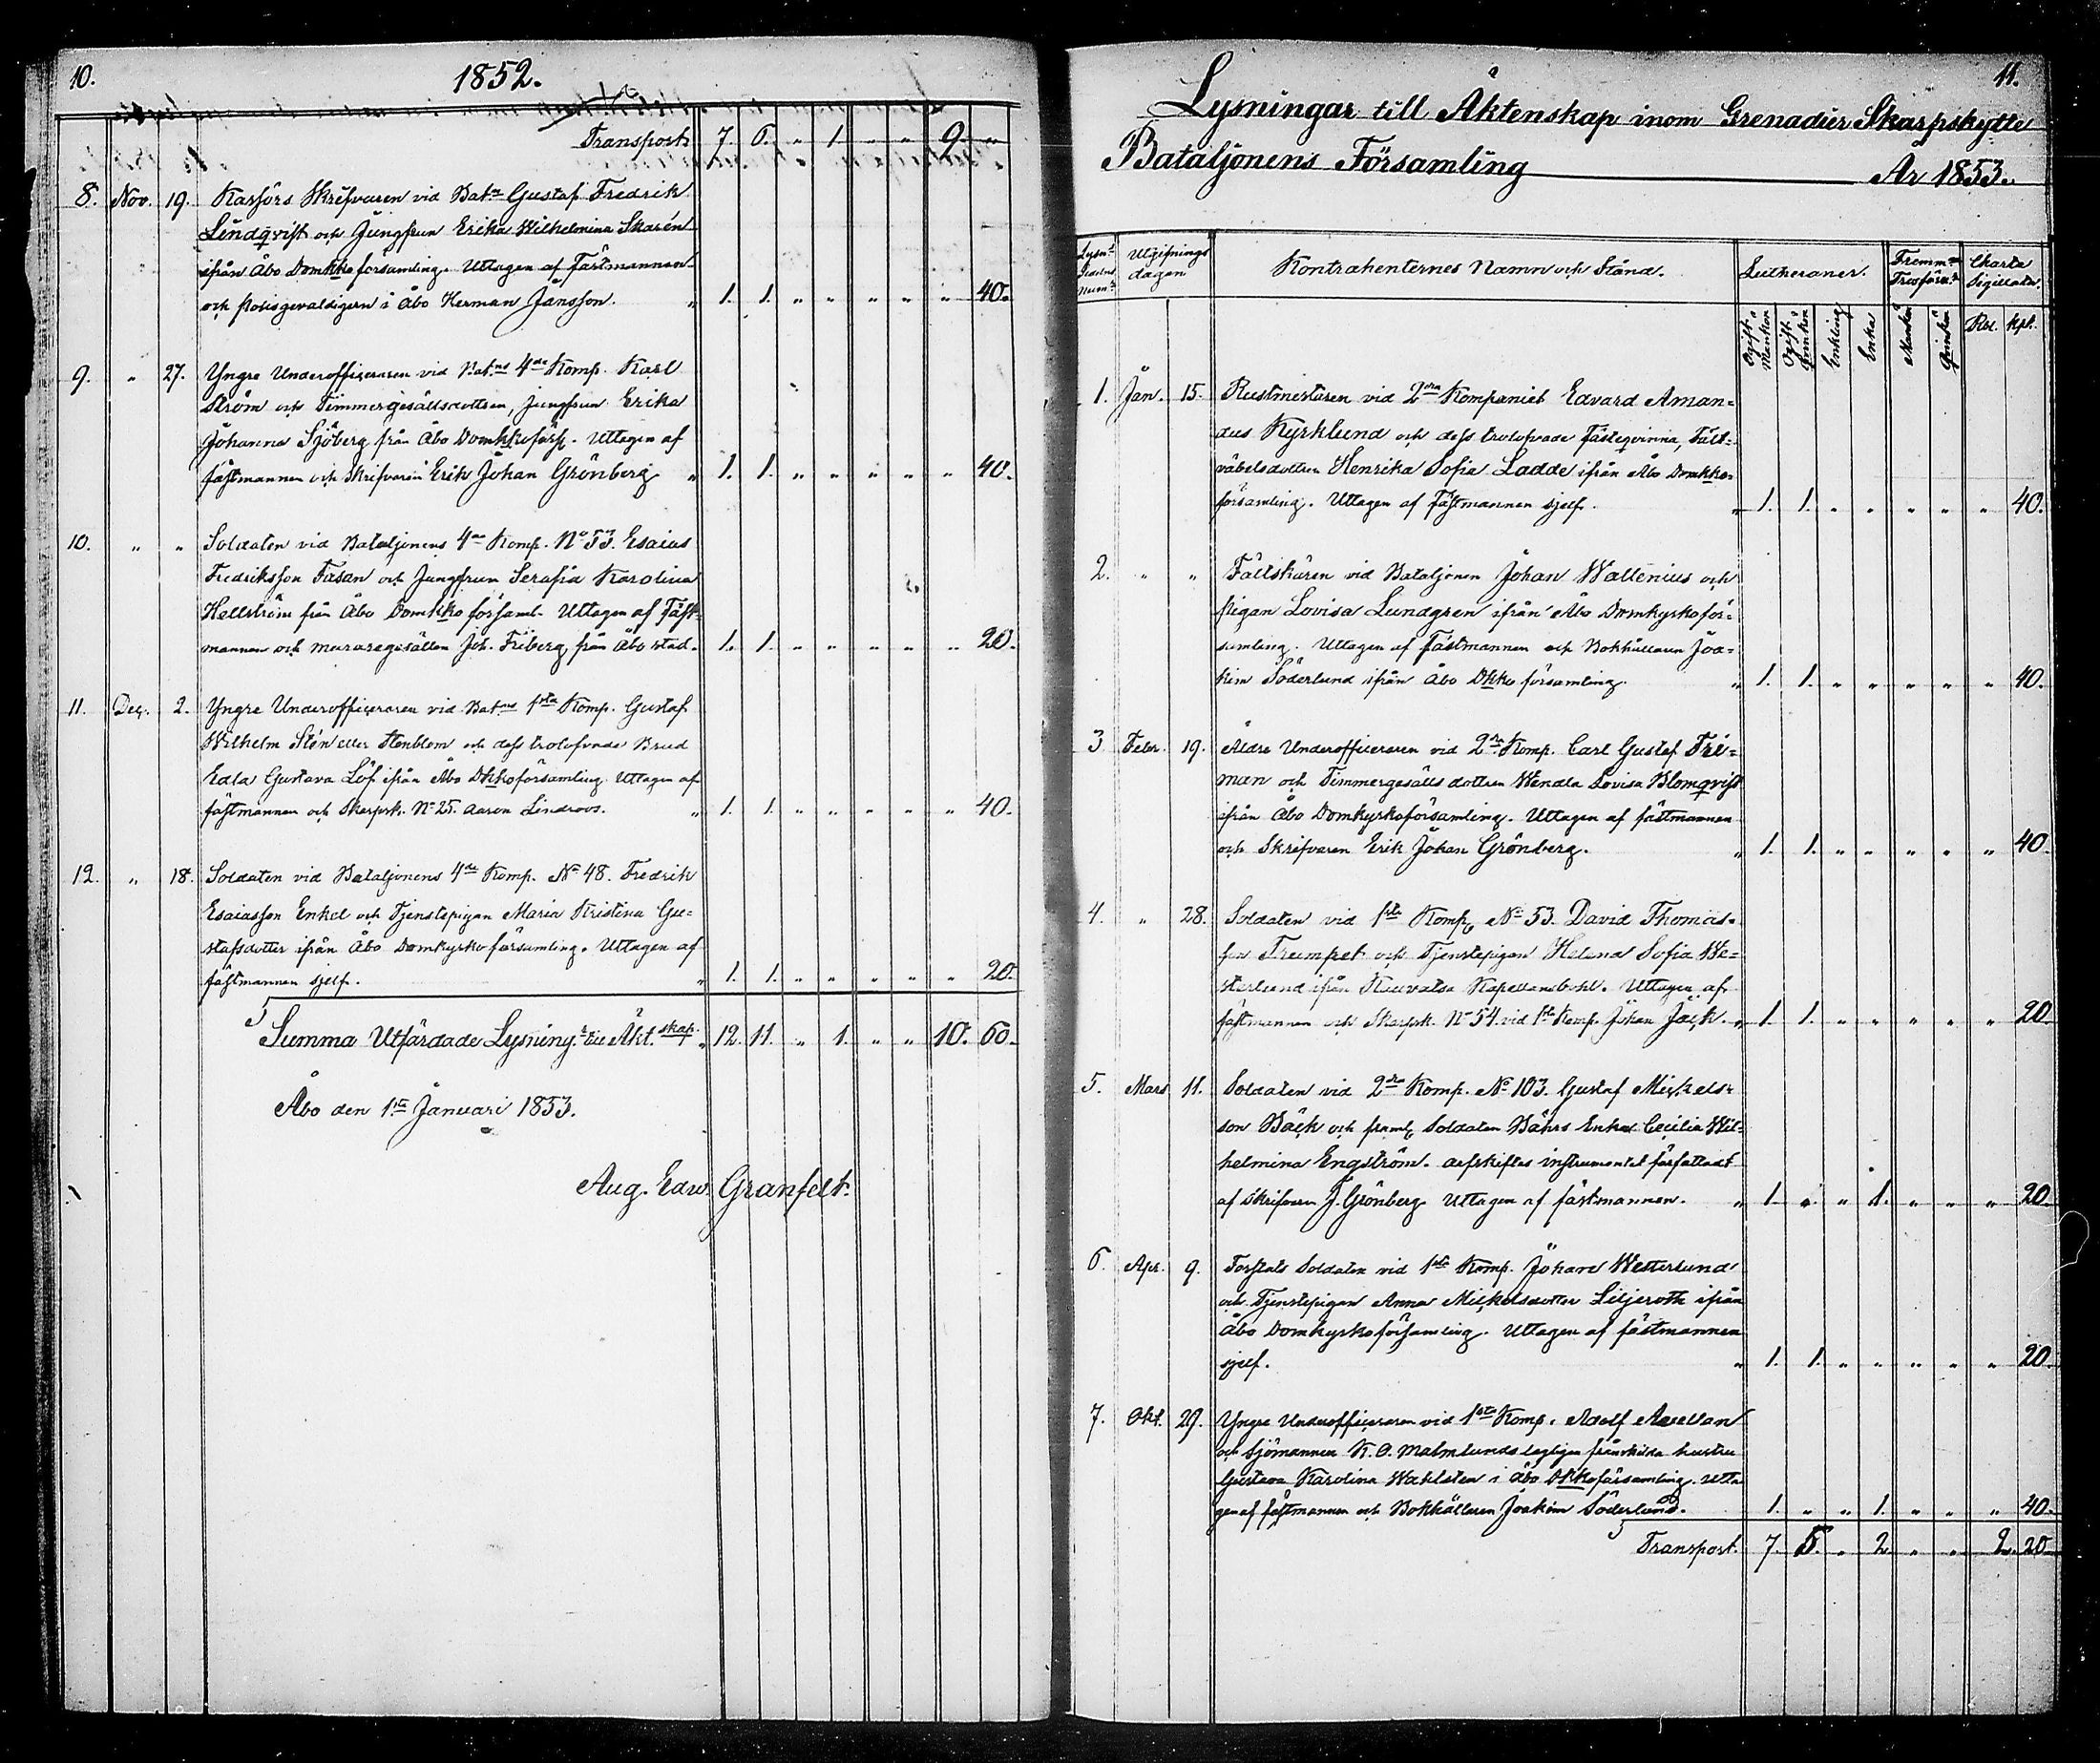 10.
1852.
Transport 7. 6. " 1. " " 9. "
8. Nov. 19. Karförs Skrifvaren vid Bat:n Gustaf Fredrik
Lindqvist och Jungfrun Erika Wilhelmina Skarén
ifrån Åbo Domkko församling. Uttagen af Fästmannen
och Polisgevaldigern i Åbo Herman Jansson. " 1. 1. " " " " " 40.
9. " 27. Yngre Underofficeraren vid Bat:ns 4de Komp. Karl
Ström och Timmergesällsdottren, Jungfrun Erika
Johanna Sjöberg från Åbo Domkkoförs. Uttagen af
fästmannen och Skrifvaren Erik Johan Grönberg " 1. 1. " " " " " 40.
10. " " Soldaten vid Bataljonens 4de Komp. No 53. Esaias
Fredriksson Fasan och Jungfrun Serafia Karolina
Hellström från Åbo Domkko församl. Uttagen af Fäst=
mannen och muraregesällen Joh. Friberg, från Åbo stad. 1. 1. " " " " " 20.
11. Dec. 2. Yngre Underofficeraren vid Bat:ns 1sta Komp. Gustaf
Wilhelm Stén eller Stenblom och dess trolofvade Brud
Edla Gustava Löf ifrån Åbo Dkkoförsamling. Uttagen af
fästmannen och Skarpsk. No 25. Aaron Lindroos. " 1. 1. " " " " " 40.
12. " 18. Soldaten vid Bataljonens 4de Komp. No 48. Fredrik
Esaiasson Enkel och Tjenstepigan Maria Kristina Gu=
stafsdotter ifrån Åbo Domkyrko församling. Uttagen af
fästmannen sjelf. " 1. 1. " " " " " 20.
Summa Utfärdade Lysning.r till Äkt.skap. " 12. 11. " 1. " " 10. 60.
Åbo den 1sta Januari 1853.
Aug. Edw. Granfelt.
11.
Lysningar till Äktenskap inom Grenadier Skarpskytte
Bataljonens Församling År 1853.
Lysn:s Sedelns Num:r Utgifnings dagen Kontrahenternes Namn och Stånd. Lutheraner. Fremm:e Trosförv:r Charta Sigillata.
Ogift Mankön Ogift Qvinkön Enkling Enka Mankön Qvinkön Rbl. Kpk.
1. Jan. 15. Rustmestaren vid 2dra Kompaniet Edvard Aman=
dus Kyrklund och dess trolofvade Fästeqvinna, Fält=
väbelsdottren Henrika Sofia Ladde ifrån Åbo Domkko=
församling. Uttagen af Fästmannen sjelf. " 1. 1. " " " " " 40.
2. " " Fältskären vid Bataljonen Johan Wallenius och
Pigan Lovisa Lundgren ifrån Åbo Domkyrkoför=
samling. Uttagen af Fästmannen och Bokhållaren Joa=
kim Söderlund ifrån Åbo Dkko församling. " 1. 1. " " " " " 40.
3 Febr. 19. Äldre Underofficeraren vid 2dra Komp. Carl Gustaf Fri=
man och Timmergesälls dottren Wendla Lovisa Blomqvist
ifrån Åbo Domkyrkoförsamling. Uttagen af fästmannen
och Skrifvaren Erik Johan Grönberg. " 1. 1. " " " " " 40.
4. " 28. Soldaten vid 1sta Komp. No 53. David Thomas=
son Trumpet och Tjenstepigan Helena Sofia We=
sterlund ifrån Kauvatsa Kapellansbohl. Uttagen af
fästmannen och Skarpsk. No 54. vid 1sta Komp. Johan Jäck. " 1. 1. " " " " " 20.
5. Mars 11. Soldaten vid 2dra Komp. No 103. Gustaf Mickels=
son Bäck och framl. Soldaten Bährs Enka Cecilia Wil=
helmina Engström. arfskiftes instrumentet författadt
af Skrifvaren J. Grönberg. Uttagen af fästmannen. " 1. " " 1. " " " 20.
6. Apr. 9. Forstats Soldaten vid 1sta Komp. Johan Westerlund
och Tjenstepigan Anna Mickelsdotter Liljeroth ifrån
Åbo Domkyrkoförsamling. Uttagen af fästmannen
sjelf. " 1. 1. " " " " " 20.
7. Okt. 29. Yngre Underofficeraren vid 1sta Komp. Adolf Avellan
och Sjömannen K. O. Malmlunds lagligen frånskilda hustru
Gustava Karolina Wahlsten i Åbo Dkkoförsamling. Utta
gen af fästmannen och Bokhållaren Joakim Söderlund. 1. " " 1. " " " 40.
Transport. 7. 5. " 2. " " 2. 20.